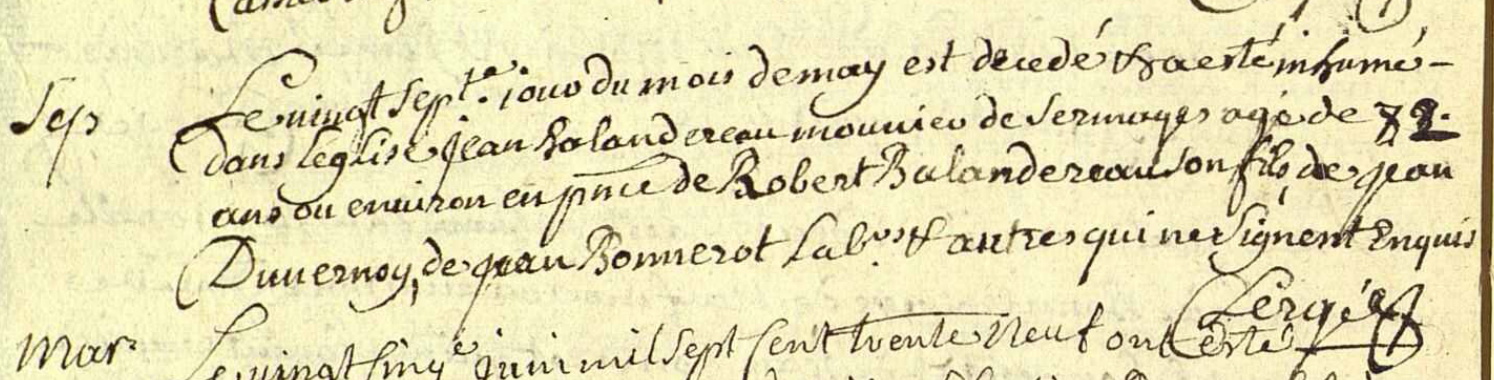 Sep
Le vingt sept.e jour du mois de may est decedé & a esté inhumé -
dans l'eglise Jean Balandereau mounier de Sermages agé de 72.
ans ou environ en pnce de Robert Balandereau son fils, de Jean
Duvernoy, de Jean Bonnerot Lab.rs & autres qui ne signent Enquis
Mar.
Le vingt sinq.e juin mil sept cent trente neuf ont esté